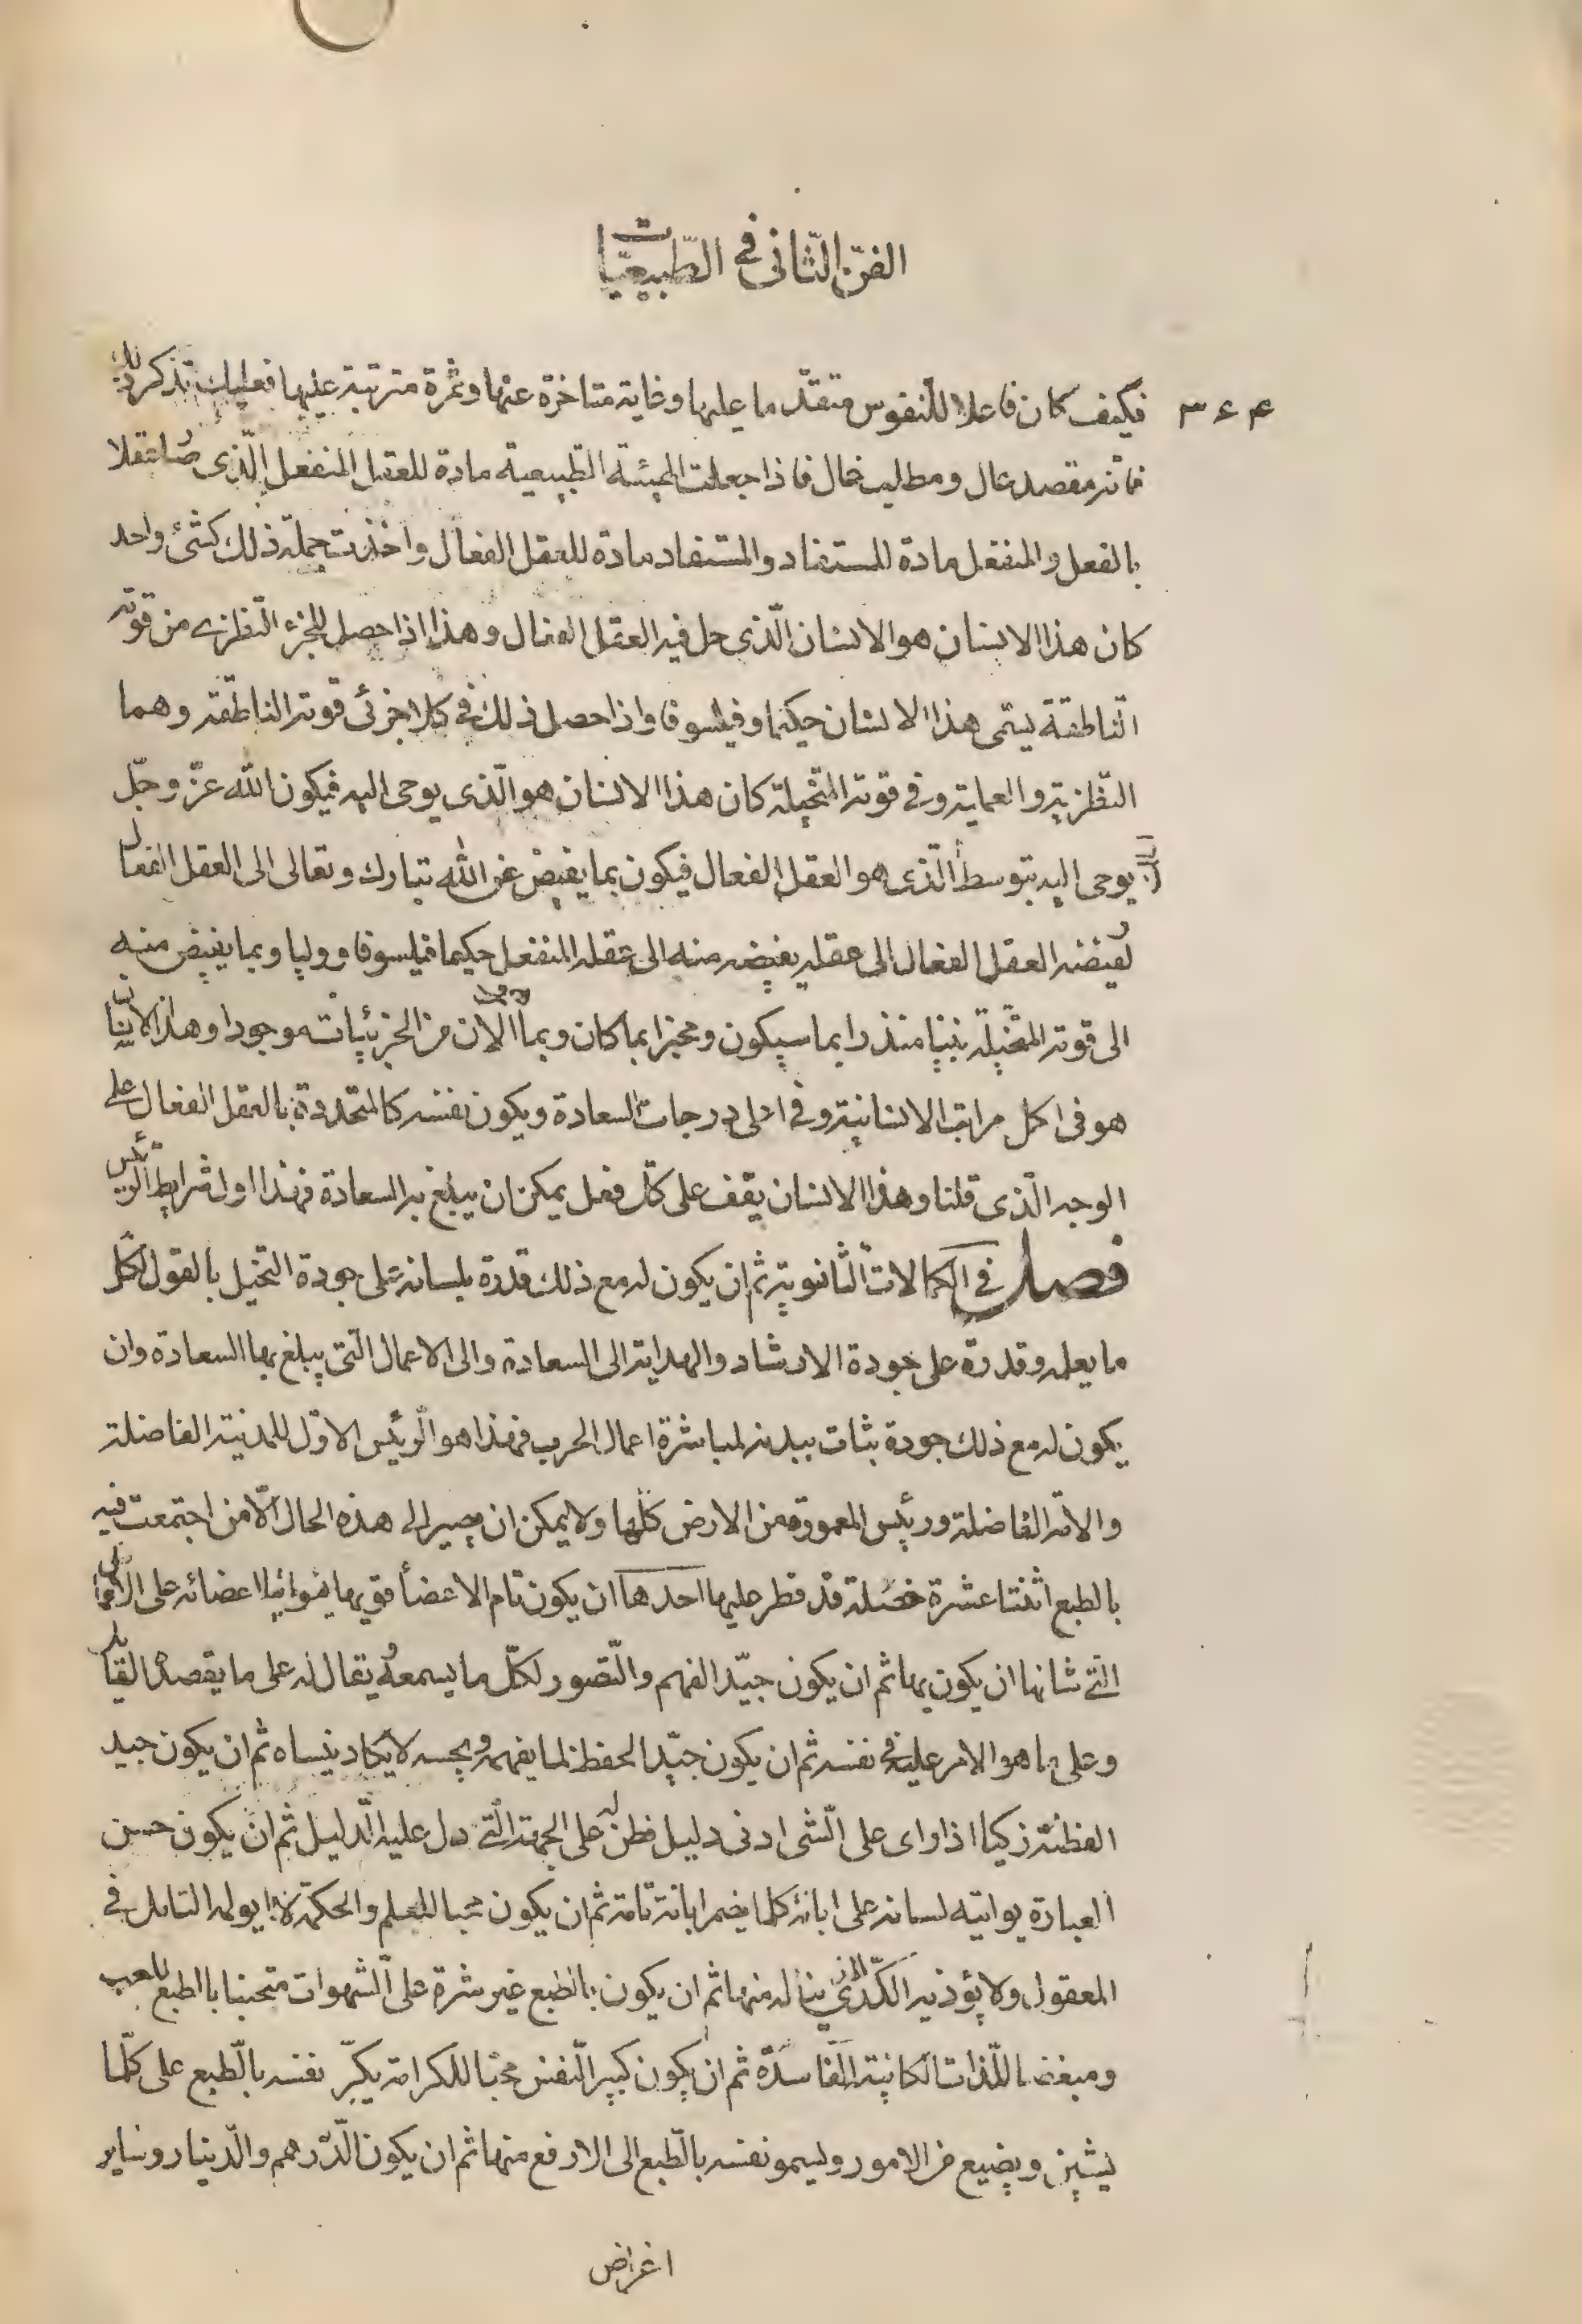 الفن الثانى فى الطبيعيات
۳۶۴ فكيف كان فاعلا للنفوس متقدما عليها وغاية متاخرة عنها وثمرة مترتبة عليها فعليك تذكر ذلك
فانه مقصد عال ومطلب غال فاذا جعلت الهيئة الطبيعية مادة للعقل المنفعل الذى صار عقلا
بالفعل والمنفعل مادة للمستفاد والمستفاد مادة للعقل الفعال واخذت جملة ذلك كشئ واحد
كان هذا الانسان هو الانسان الذى حل فيه العقل الفعال وهذا اذا حصل للجزء النظرى من قوته
الناطقة يسمى هذا الانسان حكيما وفيلسوفا واذا حصل ذلك فى كلا جزئى قوته الناطقة وهما
النظرية والعملية وفى قوته المتخيلة كان هذا الانسان هو الذى يوحى اليه فيكون الله عز وجل
يوحى اليه بتوسط الذى هو العقل الفعال فيكون بما يفيض عن الله تبارك وتعالى الى العقل الفعال
يفيضه العقل الفعال الى عقله يفيضه منه الى عقله المنفعل حكيما فيلسوفا ووليا وبما يفيض منه
الى قوته المتخيلة نبيا منذرا بما سيكون ومخبرا بما كان وبما الان من الجزئيات موجودا وهذا الانسان
هو فى اكمل مراتب الانسانية وفى اعلى درجات السعادة ويكون نفسه كالمتحدة بالعقل الفعال على
الوجه الذى قلنا وهذا الانسان يقف على كل فعل يمكن ان يبلغ به السعادة فهذا اول شرايط الرئيس
فصل فى الكمالات الثانوية ثم ان يكون له مع ذلك قدرة بلسانه على جودة التخيل بالقول لكل
ما يعلمه وقدرة على جودة الارشاد والهداية الى السعادة والى الاعمال التى يبلغ بها السعادة وان
يكون له مع ذلك جودة ثبات ببدنه لمباشرة اعمال الحرب فهذا هو الرئيس الاول للمدنية الفاضلة
والامة الفاضلة ورئيس المعمورة من الارض كلها ولا يمكن ان يصير الى هذه الحال الا من اجتمعت فيه
بالطبع اثنتا عشرة خصلة قد فطر عليها احدها ان يكون تام الاعضأ قويها يوانيها اعضائه على الافعال
التى شانها ان يكون بها ثم ان يكون جيد الفهم والتصور لكل ما يسمعه ويقال له على ما يقصده القايل
وعلى ما هو الامر عليه فى نفسه ثم ان يكون جيد الحفظ لما يفهمه ويحسه لا يكاد ينساه ثم ان يكون جيد
الفطنة زكيا اذا راى على الشى ادنى دليل فطن له على الجهة التى دل عليه الدليل ثم ان يكون حسن
العبارة يواتيه لسانه على ابانة كلما يضمر ابانة تامة ثم ان يكون محبا للعلم والحكمة لا يولمه التامل فى
المعقول ولا يؤذيه الكد الذى يناله منها ثم ان يكون بالطبع غير شرة على الشهوات متجنبا بالطبع للعب
ومبغضا لللذات الكائنة الفاسدة ثم ان يكون كبير النفس محبا للكرامة يكبر نفسه بالطبع على كلما
يشين ويضيع من الامور وليسمو نفسه بالطبع الى الارفع منها ثم ان يكون الدرهم والدينار وساير
اغراض